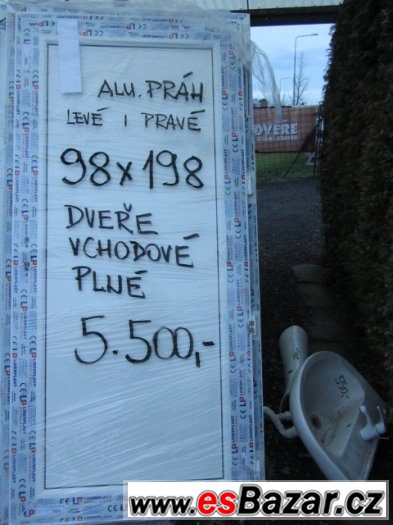 ALU. PRÁH
LEVÉ I PRAVÉ
98x198
DVEŘE
VCHODOVÉ
PLNÉ
5.500,-
DVEŘE
550,-
www.esBazar.cz